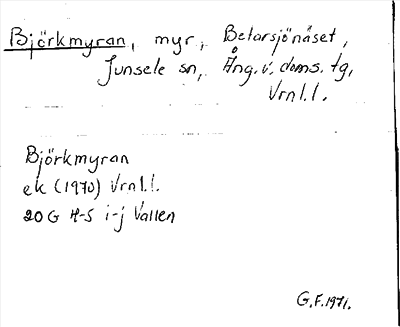 Björkmyran, myr, Betarsjönäset,
Junsele sn, Ång. v. doms. tg,
Vrnl. l.
Björkmyran
ek (1970) Vrnl. l.
20 G 4-5 i-j Vallen
G.F. 1971.